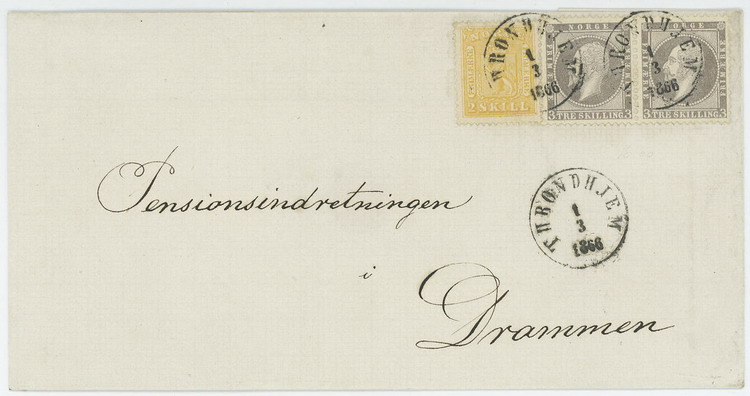 THRONDHJEM
1
3
1866
THRONDHJEM
1
3
1866
NORGE
NORGE
FRIMÆRKE
2 SKILL
3 TRE SKILLING 3
3 TRE SKILLING 3
THRONDHJEM
1
3
1866
Pensionsindretningen
i
Drammen